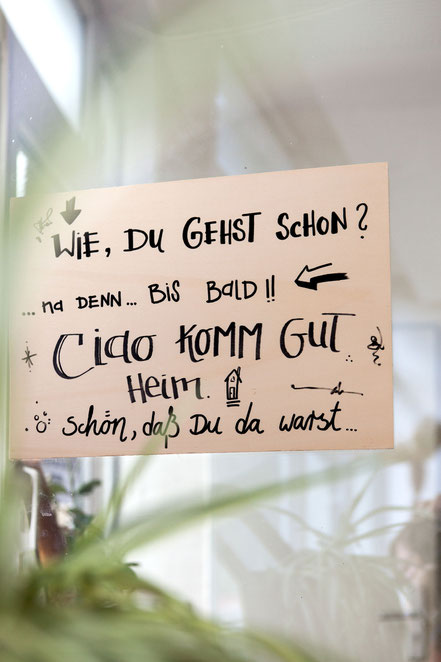 WIE, DU GEHST SCHON?
... na DENN... BIS BALD!!
Ciao KOMM GUT
HEIM.
schön, daß Du da warst...